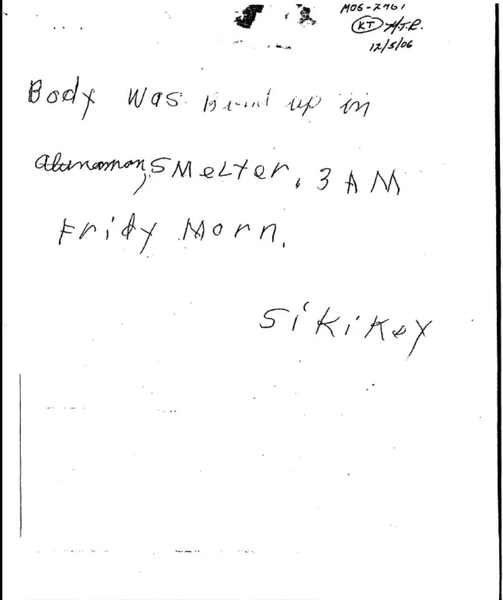 M06-2961
KT HJR.
12/5/06
Body was burnt up in
alunamon, SMeLter, 3 AM
Fridy Morn.
Sikikey